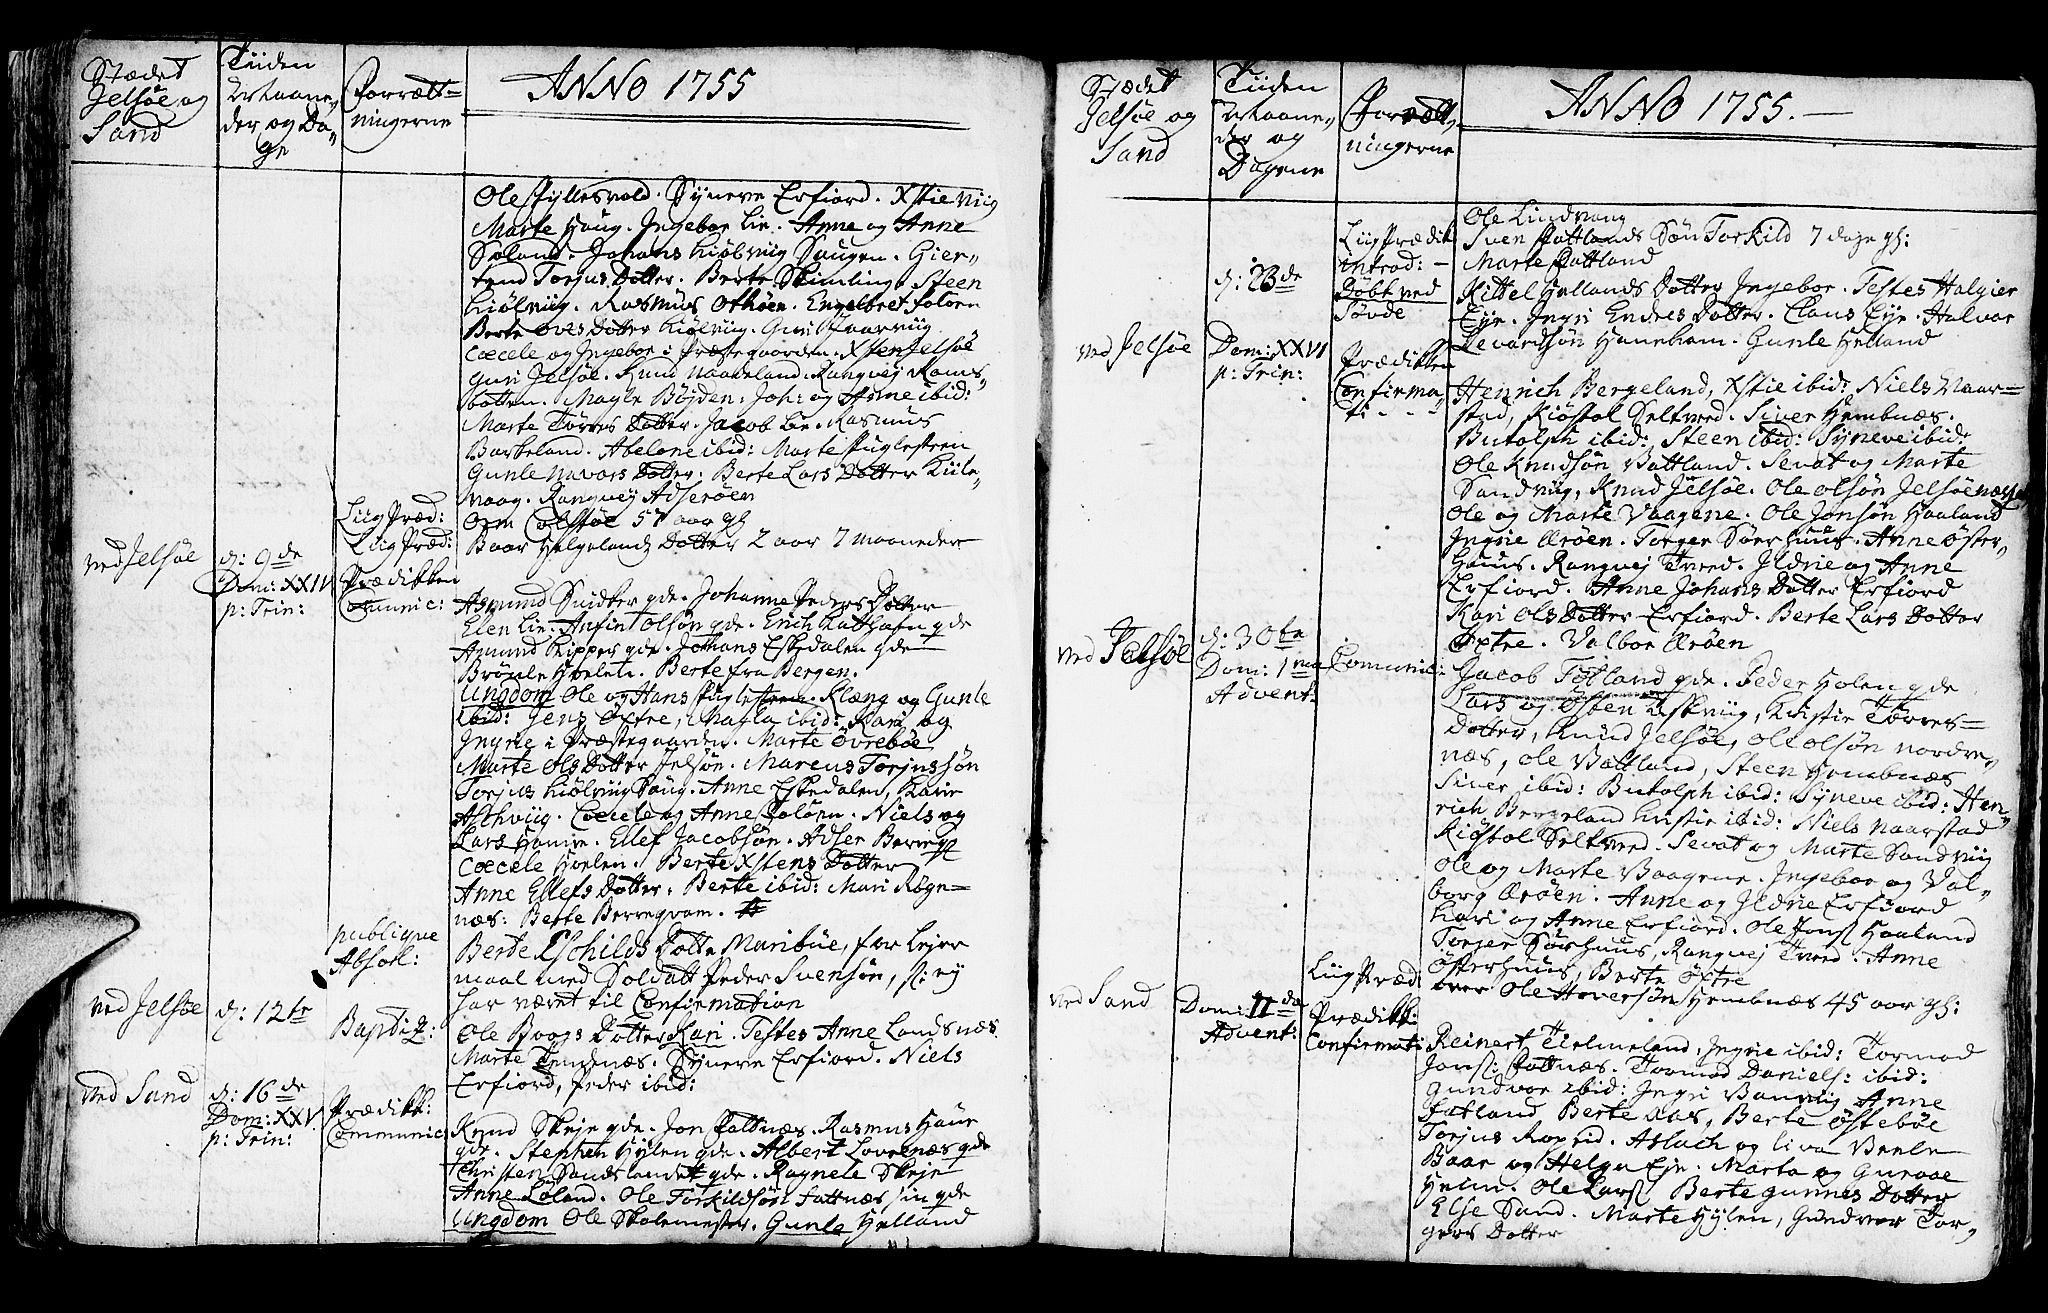 Stædet
Jelsøe og
Sand
Tiiden
Maane
der og Da
ge
Forrætt=
ningerne
ANNO 1755
Ole Syneve Erfiord. Xstie Viig
Marte Haug. Ingebor Lie. Anne og Anne
Søland. Johans Kiølviig Haugen. Gier=
trud Torjus Dotter. Berte Skimling. Steen
Kiølviig. Rasmus Engelbret Foloen
Berte Oves Dotter Kiølviig. Guri
Coecele og Ingebor i Præstegaarden. Xsten Jelsøe
Guri Jelsøe. Knud Rangvej Rams
botten. Magle Bøjden. Joh: og Anne ibid:
Marte Tørres Dotter. Jacob Lie. Rasmus
Barkeland. Abelone ibid: Marte Fuglesteen
Gunle Navars Dotter. Berte Lars Dotter
vaag. Rangvej Adserøen
Liig Præd: Orm 57 aar gl
Liig Præd: Baar Helgelands Dotter 2 aar 7 maaneder
ved Jelsøe d: 9de
Dom: XXIV
p: Trin:
Prædikken
Comunic:
Asmund gde. Johanne Peders Dotter
Elen Lie. Anfint Olsøn gde. Erich gde
Amund gde. Johans Eskedalen gde
Berte fra Bergen.
Ungdom Ole og Hans Fuglesteen. Klæng og Gunle
ibid: Jens Øxtre, Magla ibid: Kari og
Ingrie i Præstegaarden. Marte Øvrebøe
Marte Ols Dotter Jelsøe. Marcus Torjussøn
Torjus Kiølviig Haug. Anne Eskedalen, Karie
Coecele og Anne Foloen. Niels og
Lars Hamre. Ellef Jacobsøn. Adser
Coecele Hoelen. Berte Xstens Dotter
Anne Ellefs Dotter. Berte ibid: Mari Røgne=
næs: Berte Berregvam.
publique
Absol:
Berte Eschilds Dotter Maribøe, for Lejer
maal med Soldatt Peder Svensøn, ej
har været til Confirmation
ved Jelsøe d: 12te
Baptiz:
Ole Boogs Dotter Kari. Testes Anne Landsnæs
Marte Tendenæs. Syneve Erfiord. Niels
Erfiord, Peder ibid:
ved Sand d: 16de
Dom: XXV
p: Trin:
Prædikk:
Communic
Knud Skeje gde. Jon Fattnæs. Rasmus Haue
gde. Stephen Hylen gde. Albert Lovrenæs gde
Christen Sandslandet gde. Ragnele Skeje
Anne Løland. Ole Torkildsøn Fattnæs gde
Ungdom Ole Skolemester. Gunle Helland
Stædet
Jelsøe og
Sand
Tiiden
Maane
der og
Dagene
Forrætt
ningerne
ANNO 1755.
Ole Lindvaag
Liig Prædik Sven Fattlands Søn Torkild 7 dage gl:
introd: Marte Fattland
d: 23de
Døbt ved
Søvde
Kittel Hellands Dotter Ingebor. Testes Halgier
Eye. Ingri Endres Dotter. Claus Eye. Halvar
Levardsøn Haneham. Gunle Helland
ved Jelsøe Dom: XXVI
p: Trin:
Prædikken
Confirma
ti
Henrich Bergeland, Xstie ibid: Niels Naar=
stad, Kiøstol Seltveed. Siver Hembnæs.
Butolph ibid: Steen ibid: Syneve ibid:
Ole Knudsøn Vattland. Sevat og Marte
Sandviig, Knud Jelsøe. Ole Olsøn Jelsøe
Ole og Marte Vaagene. Ole Jonsøn Haaland
Ingrie Ærøen. Torger Sørhuus. Anne Øster
huus. Rangvej Tveed. Ildrie og Anne
Erfiord. Anne Johans Dotter Erfiord
Kari Ols Dotter Erfiord. Berte Lars Dotter
Øxtre. Valbor Ærøen
ved Jelsøe d: 30te
Dom: 1ma
Advent:
Comunic:
Jacob Tøtland gde. Peder Holen gde
Lars og Østen Eskeviig, Kirstie Tørres=
Dotter, Knud Jelsøe, Ole Olsøn Nordre
næs, Ole Vattland, Steen Hembnæs
Siver ibid: Butolph ibid: Syneve ibid: Hen
rich Bergeland Kirstie ibid: Niels Naarstad
Kiøstol Seltveed. Sevat og Marte Sandviig
Ole og Marte Vaagene. Ingebor og Val
borg Ærøen. Anne og Ildrie Erfiord
Kari og Anne Erfiord. Ole Jons Haaland
Torger Sørhuus, Rangvej Tveed. Anne
Østerhuus, Berte Øxtre
Liig Præd over Ole Hoversøn Hembnæs 45 aar gl:
ved Sand Dom: IIda
Advent:
Prædikk:
Confirmati
Reinert Tielmeland, Ingrie ibid: Tormod
Jons: Fattnæs. Tormod Daniels: ibid:
Gundvor ibid: Ingri Vanviig Anne
Fatland Berte Aas, Berte Østebøe
Torjus Aslach og Liva Veele
Baar og Helga Eje. Marta og Guroe
Helm. Ole Lars: Berte Gunnes Dotter
Else Sand. Marte Hylen, Gundvor Tor
gers Dotter